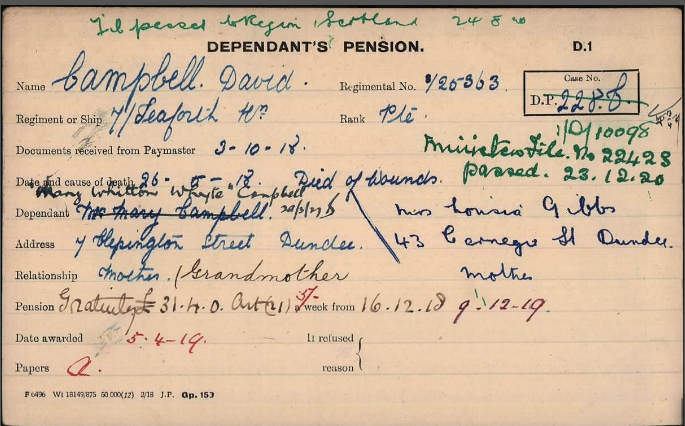 passed to Region Scotland 24 8
DEPENDANT'S PENSION. D.1
Name Campbell. David. Regimental No. 25363 Case No.
Regiment or Ship 7/Seaforth Hrs Rank Pte. D.P. 228.C.
Documents received from Paymaster 3-10-18. 1/D/10098
Ministers File. No 22423
passed. 23.12.20
Date and cause of death 26-5-18. Died of Wounds.
Mary Whitton Whyte Campbell
Dependant Mrs Mary Campbell. Mrs Louisa Gibbs
Address 7 Clepington Street Dundee. 43 Carnegie St Dundee.
Relationship Mother. (Grandmother mother
Pension Gratuity £ 31.4.0. Art (21) 5/- week from 16.12.18 9.12-19.
Date awarded 5-4-19. If refused
Papers a. reason
F 6496 Wt 18149/875 50,000(12) 2/18 J.P. Gp. 153